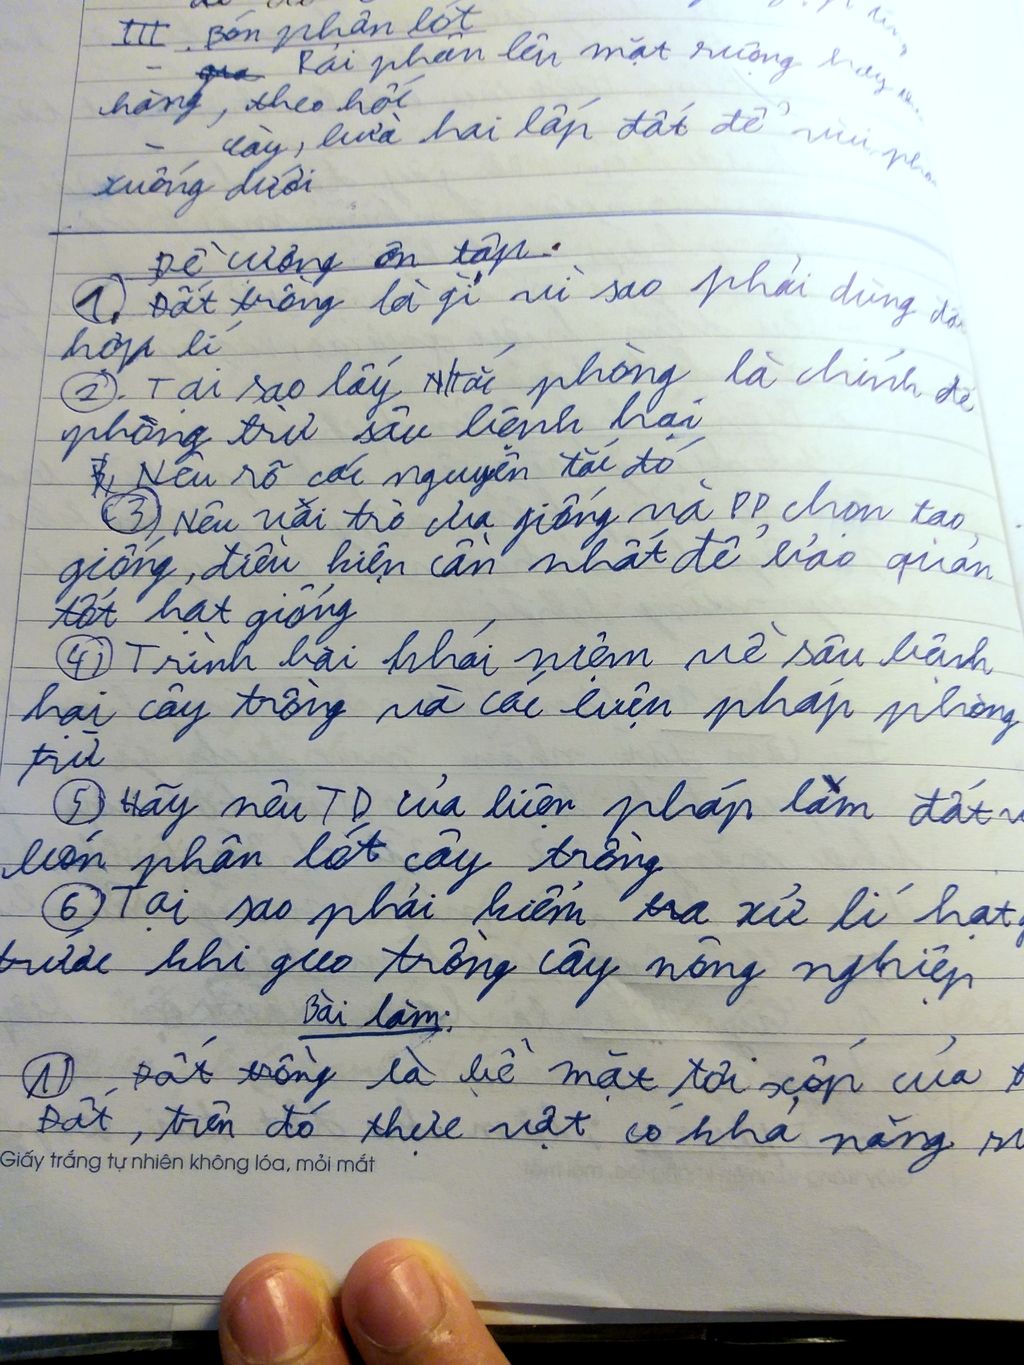 III. Bón phân lót
- Rải phân lên mặt ruộng hay
hàng, theo hốc
- cày, bừa hai lấp đất để vùi phân
xuống dưới
Đề cương ôn tập:
① Đất trồng là gì vì sao phải dùng đất
hợp lí
②. Tại sao lấy Ntắc phòng là chính để
phòng trừ sâu bệnh hại
Nêu rõ các nguyên tắc đó
③ Nêu vai trò của giống và PP chọn tạo
giống, điều kiện cần nhất để bảo quản
tốt hạt giống
④ Trình bài khái niệm về sâu bệnh
hại cây trồng và các biện pháp phòng
trừ
⑤ Hãy nêu TD của biện pháp làm đất
bón phân lót cây trồng
⑥ Tại sao phải kiểm tra xử lí hạt
trước khi gieo trồng cây nông nghiệp
Bài làm:
① Đất trồng là bề mặt tơi xốp của
Đất, trên đó thực vật có khả năng
Giấy trắng tự nhiên không lóa, mỏi mắt